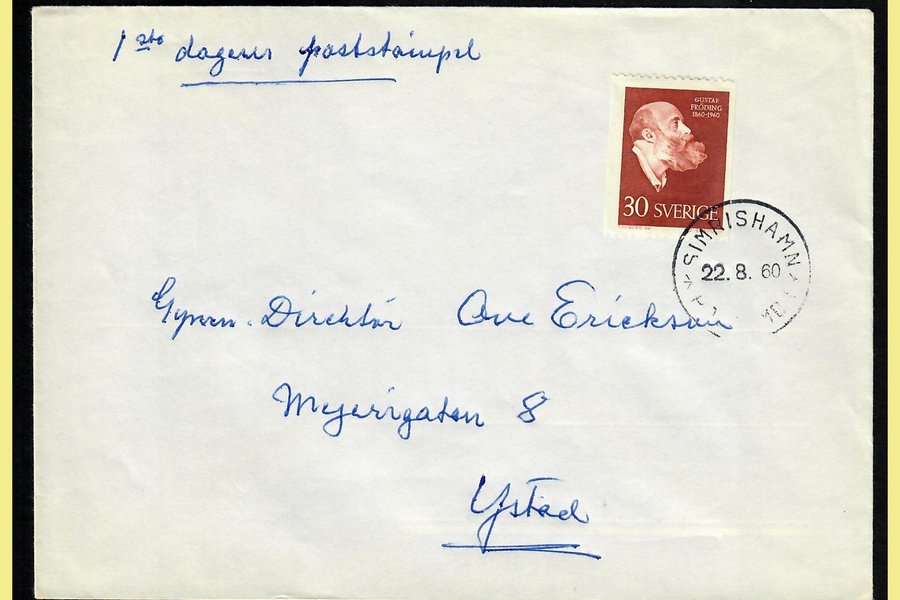 1sta dagens poststämpel
GUSTAF
FRÖDING
1860-1960
30 SVERIGE
SIMRISHAMN
22.8.60
Direktör Ove Erickson
Mejerigatan 8
Ystad